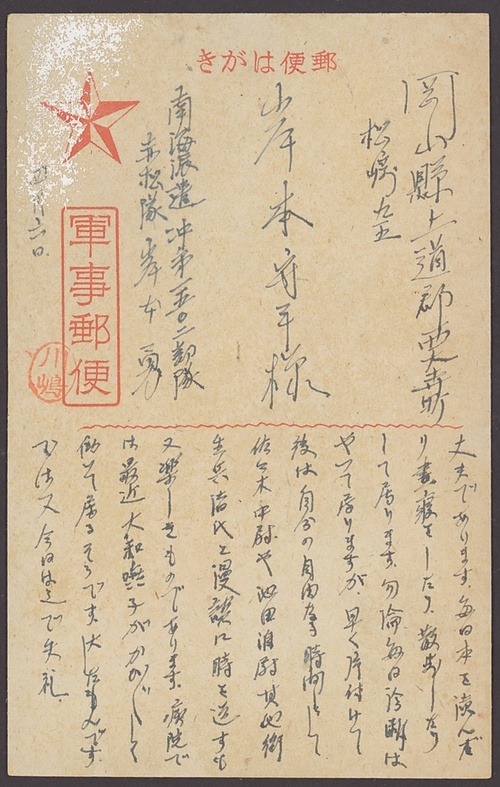 郵便はがき
岡山縣上道郡
松崎
山岸本守平様
南海派遣沖第一五〇二部隊
赤松隊 岸本勇
月六日
軍事郵便
川嶋
丈夫であります。毎日本を讀んだ
り晝寢をしたり、散歩したり
して居ります。勿論毎日診断は
やって居りますが、早く片付けて
後は自分の自由な時間として
佐々木中尉や池田准尉其他衛
生兵諸氏と漫談に時を返すも
又楽しきものであります。病院で
は最近大和撫子がかひ〴〵しく
働いて居るそうです。大したもんです。
では又 今日は之で失礼